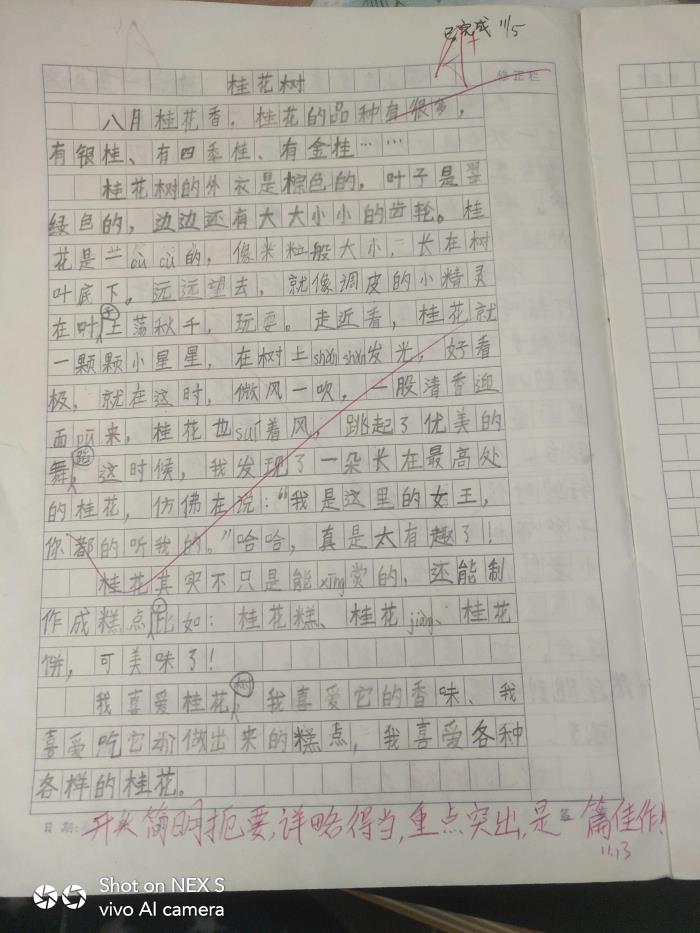 已完成 11/5
桂花树
修正栏
八月桂花香，桂花的品种有很多，
有银桂、有四季桂、有金桂……
桂花树的外衣是棕色的，叶子是翠
绿色的，边边还有大大小小的齿轮。桂
花是一cù cù的，像米粒般大小，长在树
叶底下。远远望去，就像调皮的小精灵
在叶子上荡秋千，玩耍。走近看，桂花就
一颗颗小星星，在树上shǎn shǎn发光，好看
极，就在这时，微风一吹，一股清香迎
面pū来，桂花也suí着风，跳起了优美的
舞蹈，这时候，我发现了一朵长在最高处
的桂花，仿佛在说：“我是这里的女王，
你都的听我的。”哈哈，真是太有趣了！
桂花其实不只是能xīng赏的，还能制
作成糕点，比如：桂花糕、桂花jiàng、桂花
饼，可美味了！
我喜爱桂花树，我喜爱它的香味、我
喜爱吃它所做出来的糕点，我喜爱各种
各样的桂花。
日期:
开头简明扼要，详略得当，重点突出，是一篇佳作！
11.13
Shot on NEX S
vivo AI camera